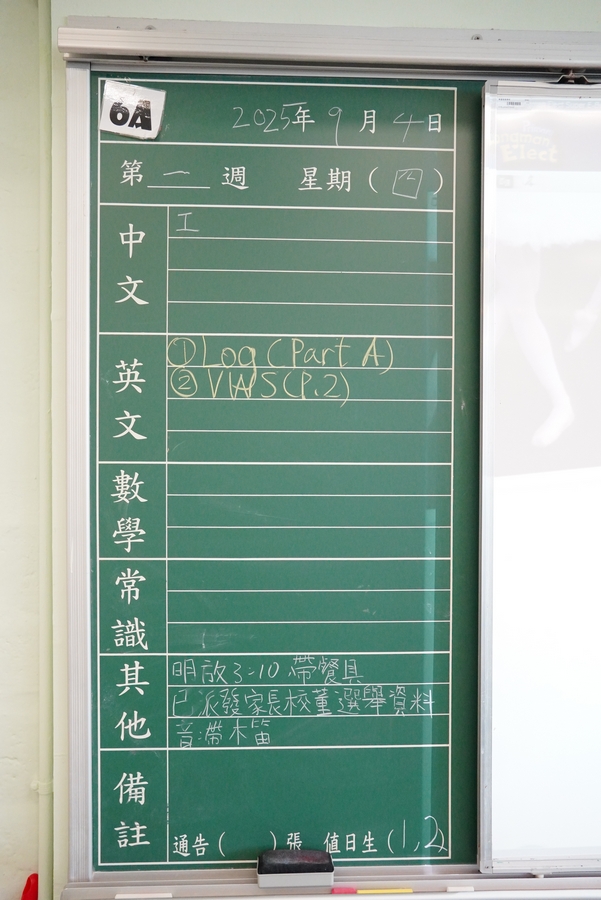 6A
2025年9月4日
第一週 星期(四)
中文
工
英文
①Log (Part A)
②VWS(P.2)
數學
常識
其他
明放3:10 帶餐具
已派發家長校董選舉資料
音:帶木笛
備註
通告( )張 值日生(1,2)
Elect